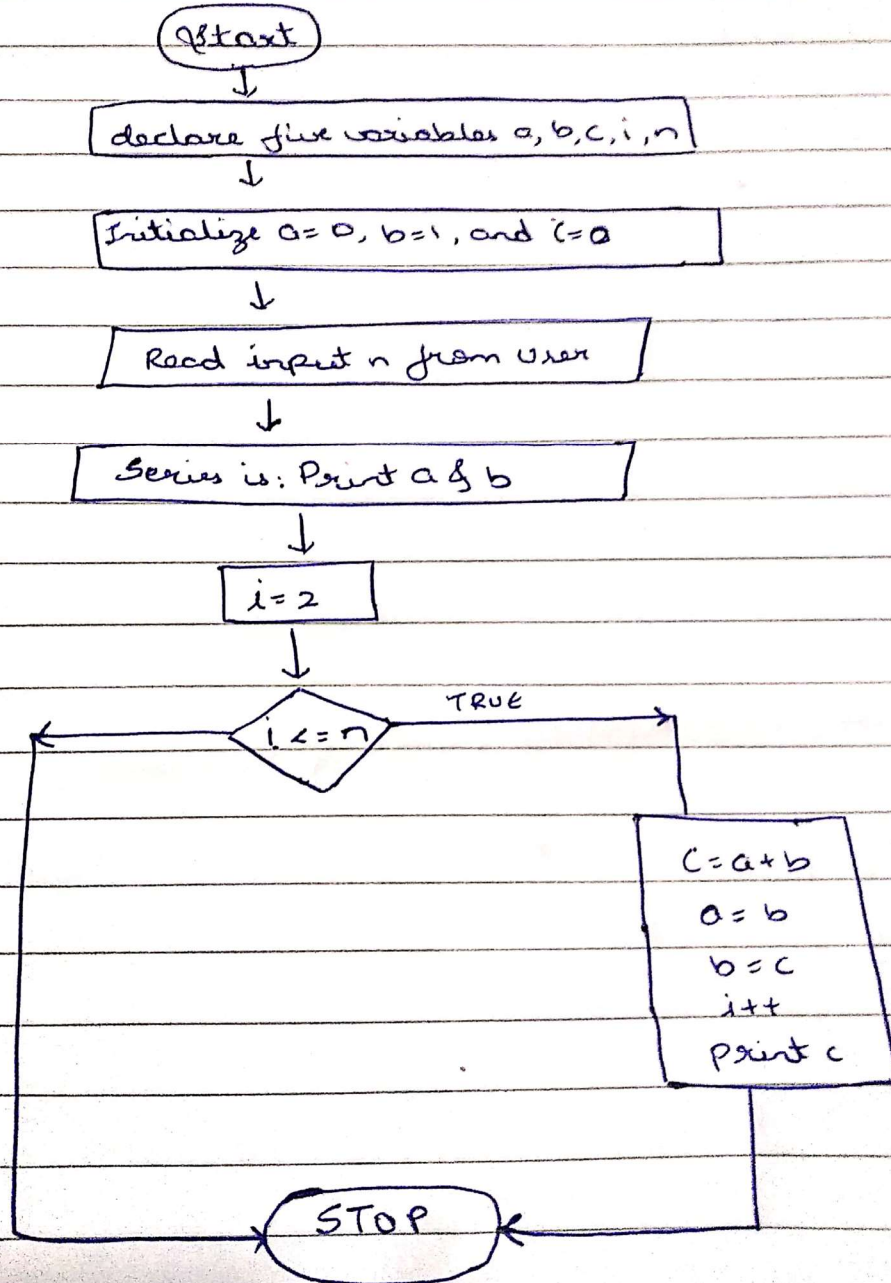 Start
declare five variables a, b, c, i, n
Initialize a=0, b=1, and c=0
Read input n from user
Series is: Print a & b
i=2
i <= n
TRUE
C=a+b
a=b
b=c
i++
print c
STOP